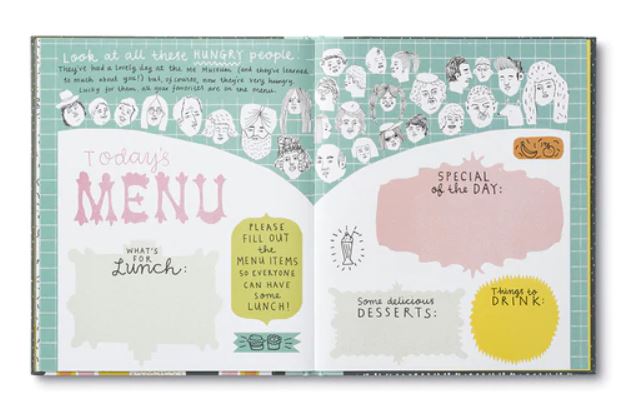 Look at all these HUNGRY people.
They've had a lovely day at the Me Museum (and they've learned
so much about you!) but, of course, now they're very hungry.
Lucky for them, all your favorites are on the menu.
Today's
MENU
WHAT'S
FOR
Lunch:
PLEASE
FILL OUT
the
MENU ITEMS
SO EVERYONE
CAN HAVE
Some
LUNCH!
SPECIAL
of the DAY:
Some delicious
DESSERTS:
Things to
DRINK: